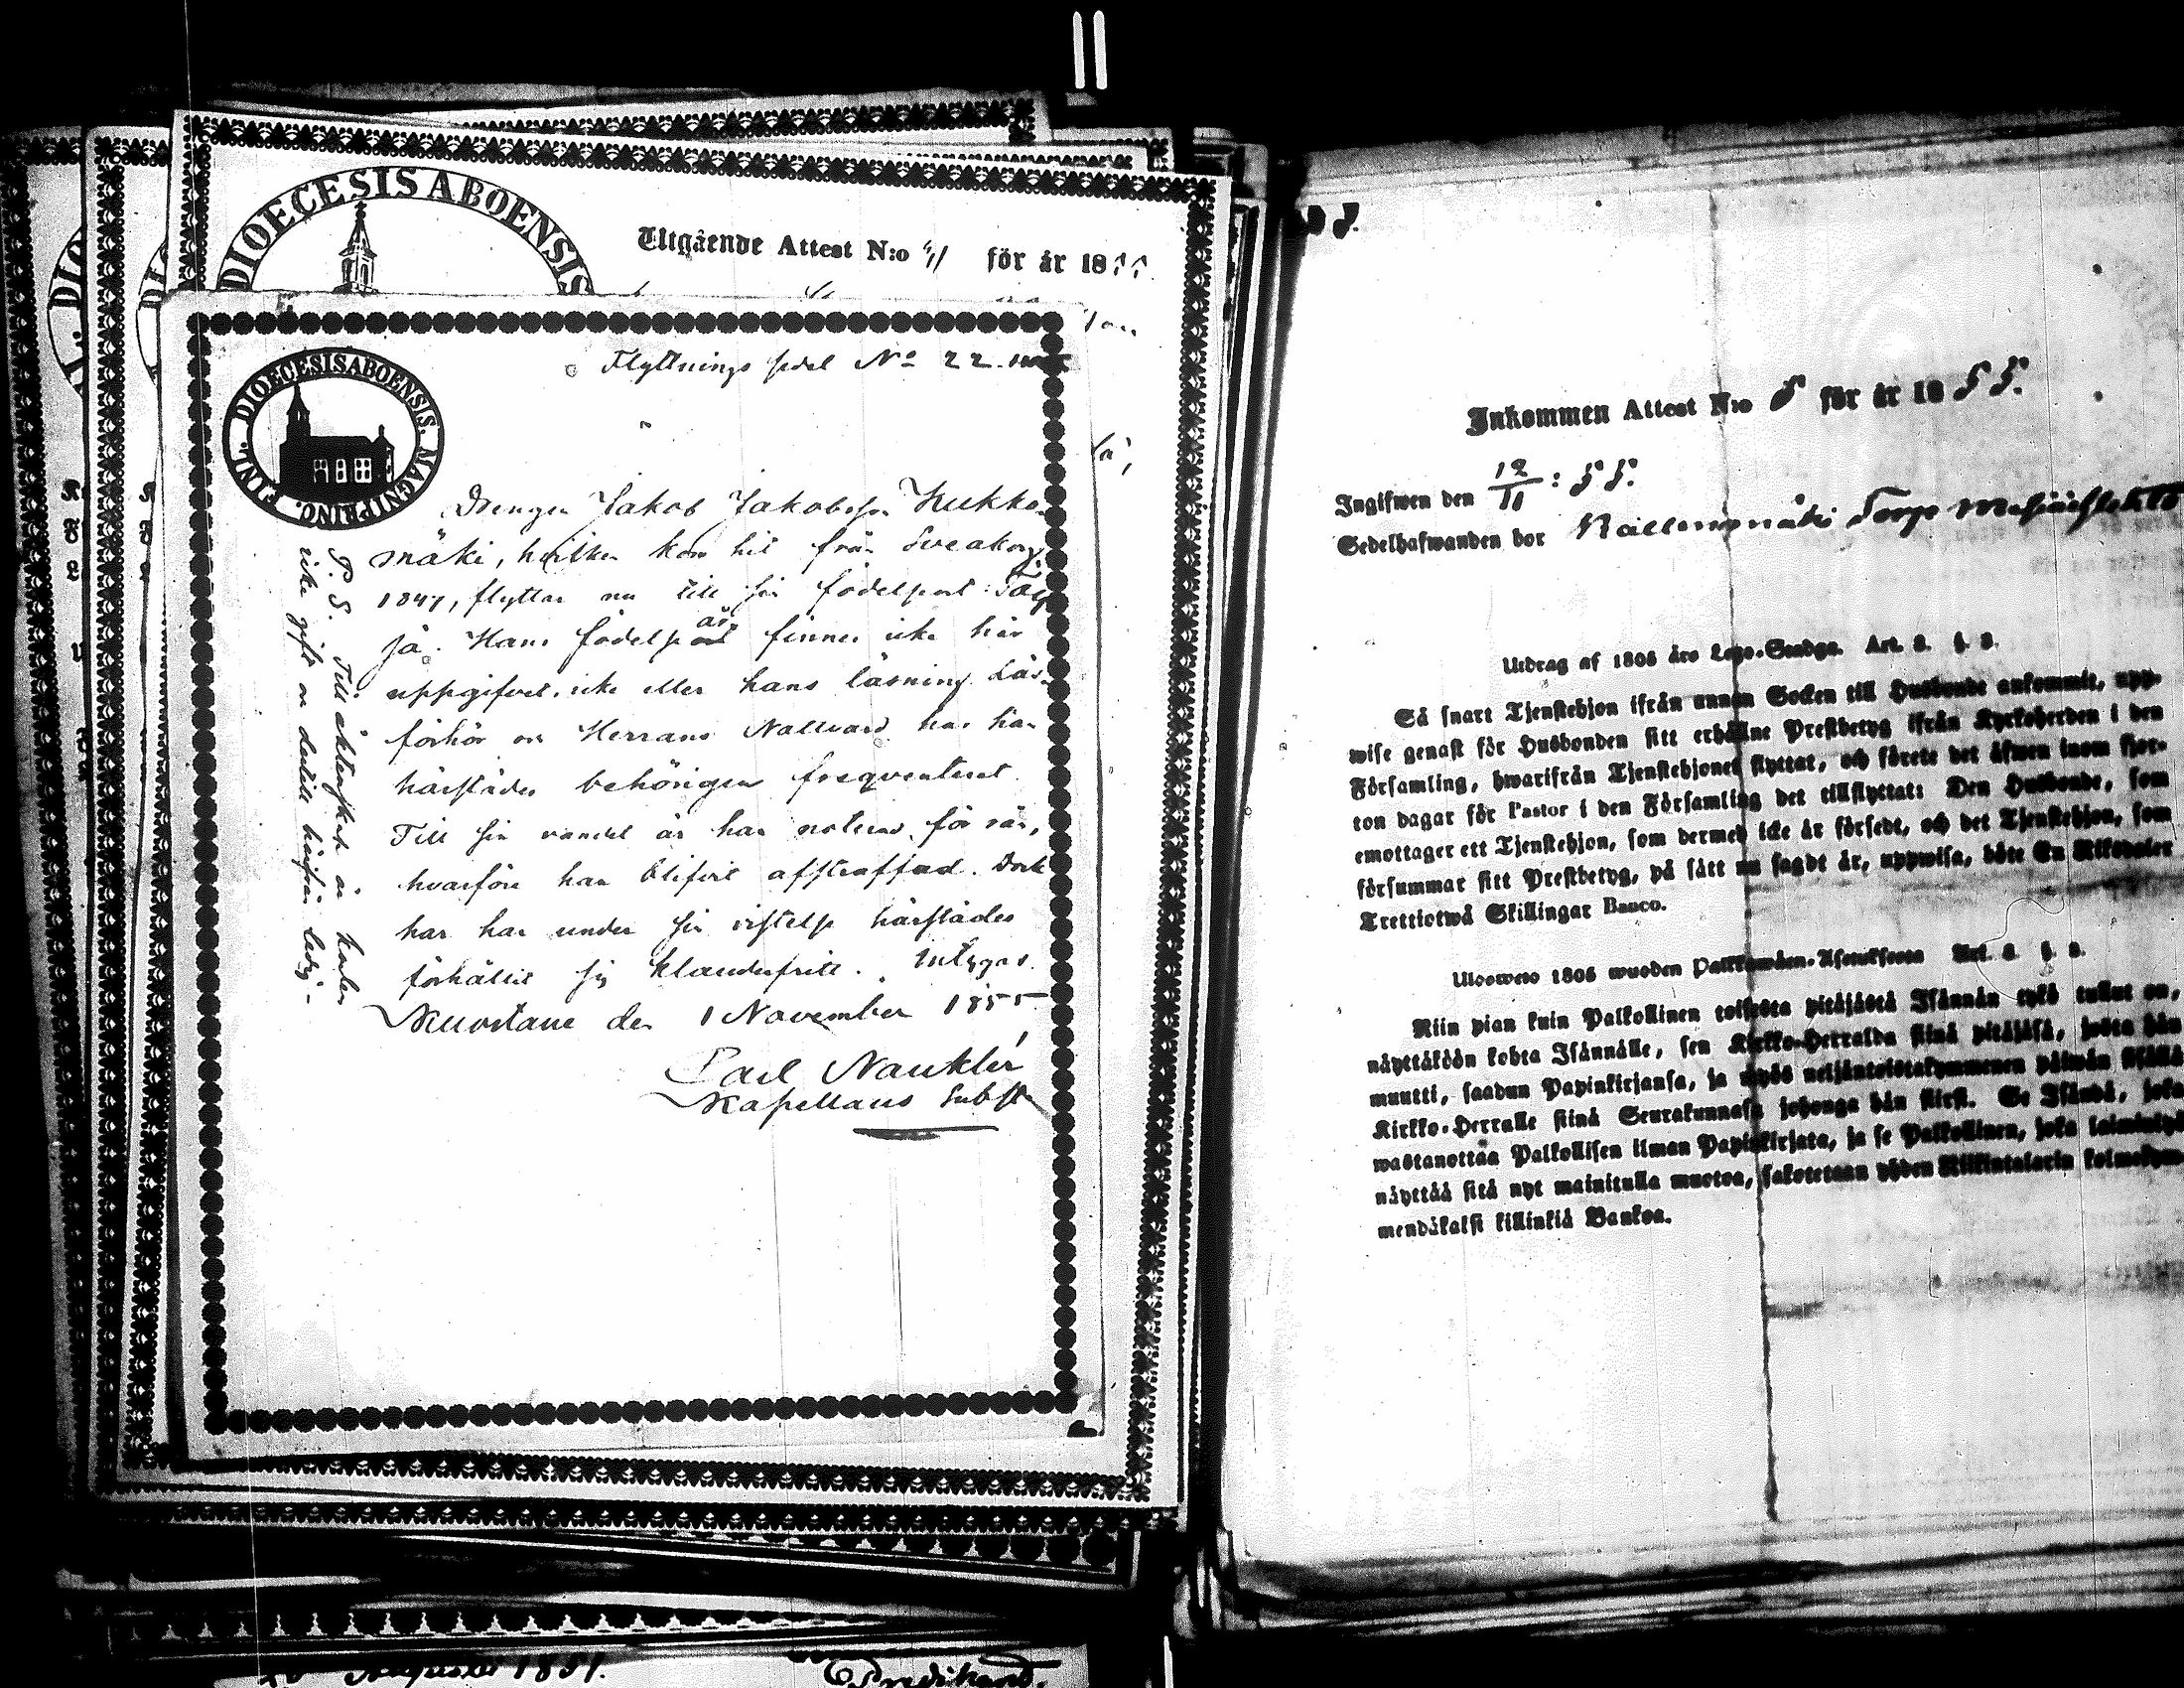 DIOECESIS ABOENSIS
Utgående Attest N:o 41 för år 1855.
Flyttnings sedel No 22.
FINL. DIOECESIS ABOENSIS. MAGNI PRINC.
Drengen Jakob Jakobsson Kukko-
mäki, hvilken kom hit från
1847, flyttar nu till sin födelseort
jä. Hans födelse år finnes icke här
uppgifvet, icke eller hans läsning. Läs-
förhör och Herrans Nattvard har han
härstädes behörigen freqventerat.
Till sin vandel är han noterad för
hvarföre han blifvit afstraffad. Dock
har han under sin vistelse härstädes
förhållit sig klanderfritt. Intygas.
Kuortane den 1 November 1855
Carl Nauklér
Kapellans Subst.
P. S. Till äktenskap är han
icke gift och dertill härifrån ledig.
Augusti 1851.
Inkommen Attest N:o 8 för år 1855.
Ingifwen den 12/11: 55.
Sedelhafwanden bor Torp
Utdrag af 1805 års Lego-Stadga. Art. 3. §. 3.
Så snart Tjenstehjon ifrån annan Socken till Husbonde ankommit, upp-
wise genast för Husbonden sitt erhållne Prestbetyg ifrån Kyrkoherden i den
Församling, hwarifrån Tjenstehjonet flyttat, och förete det äfwen inom fjor-
ton dagar för Pastor i den Församling det tillflyttat: Den Husbonde, som
emottager ett Tjenstehjon, som dermed icke är försedt, och det Tjenstehjon, som
försummar sitt Prestbetyg, på sätt nu sagdt är, uppwisa, böte En Riksdaler
Trettiotwå Skillingar Banco.
Uloswеto 1805 wuoden Palkkawäen-Asetuksesta Art. 3. §. 3.
Niin pian kuin Palkollinen toisesta pitäjästä Isännän tykö tullut on,
näyttäköön kohta Isännälle, sen Kirkko-Herralda siinä pitäjäsä, josta hän
muutti, saadun Papinkirjansa, ja myös neljäntoistakymmenen päiwän sisällä
Kirkko-Herralle siinä Seurakunnasa johonga hän siirsi. Se Isändä, joka
wastanottaa Palkollisen ilman Papinkirjata, ja se Palkollinen, joka
näyttää sitä nyt mainitulla muotoa, sakotetaan yhden Riikintalarin kolmekym-
mendäkaksi killinkiä Bankoa.